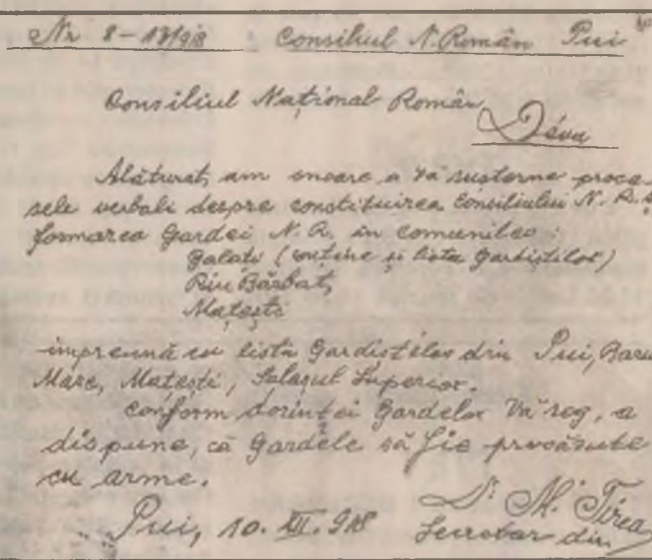 Nr 8-1918 Consiliul N. Român Pui
Consiliul Național Român
Déva
Alăturat, am onoare a vă susterne proce-
sele verbali despre constituirea Consiliului N. R. și
formarea Gardei N. R. in comunile:
Galati (conține și lista gardiștilor)
Riu Bărbat,
Matești
impreună cu lista Gardistilor din Pui, Baru
Mare, Matești, Salașul Superior.
Conform dorinței Gardelor Vă rog, a
dispune, că Gardele să fie provăzute
cu arme.
Pui, 10. XII. 918
Dr. M. Tirea